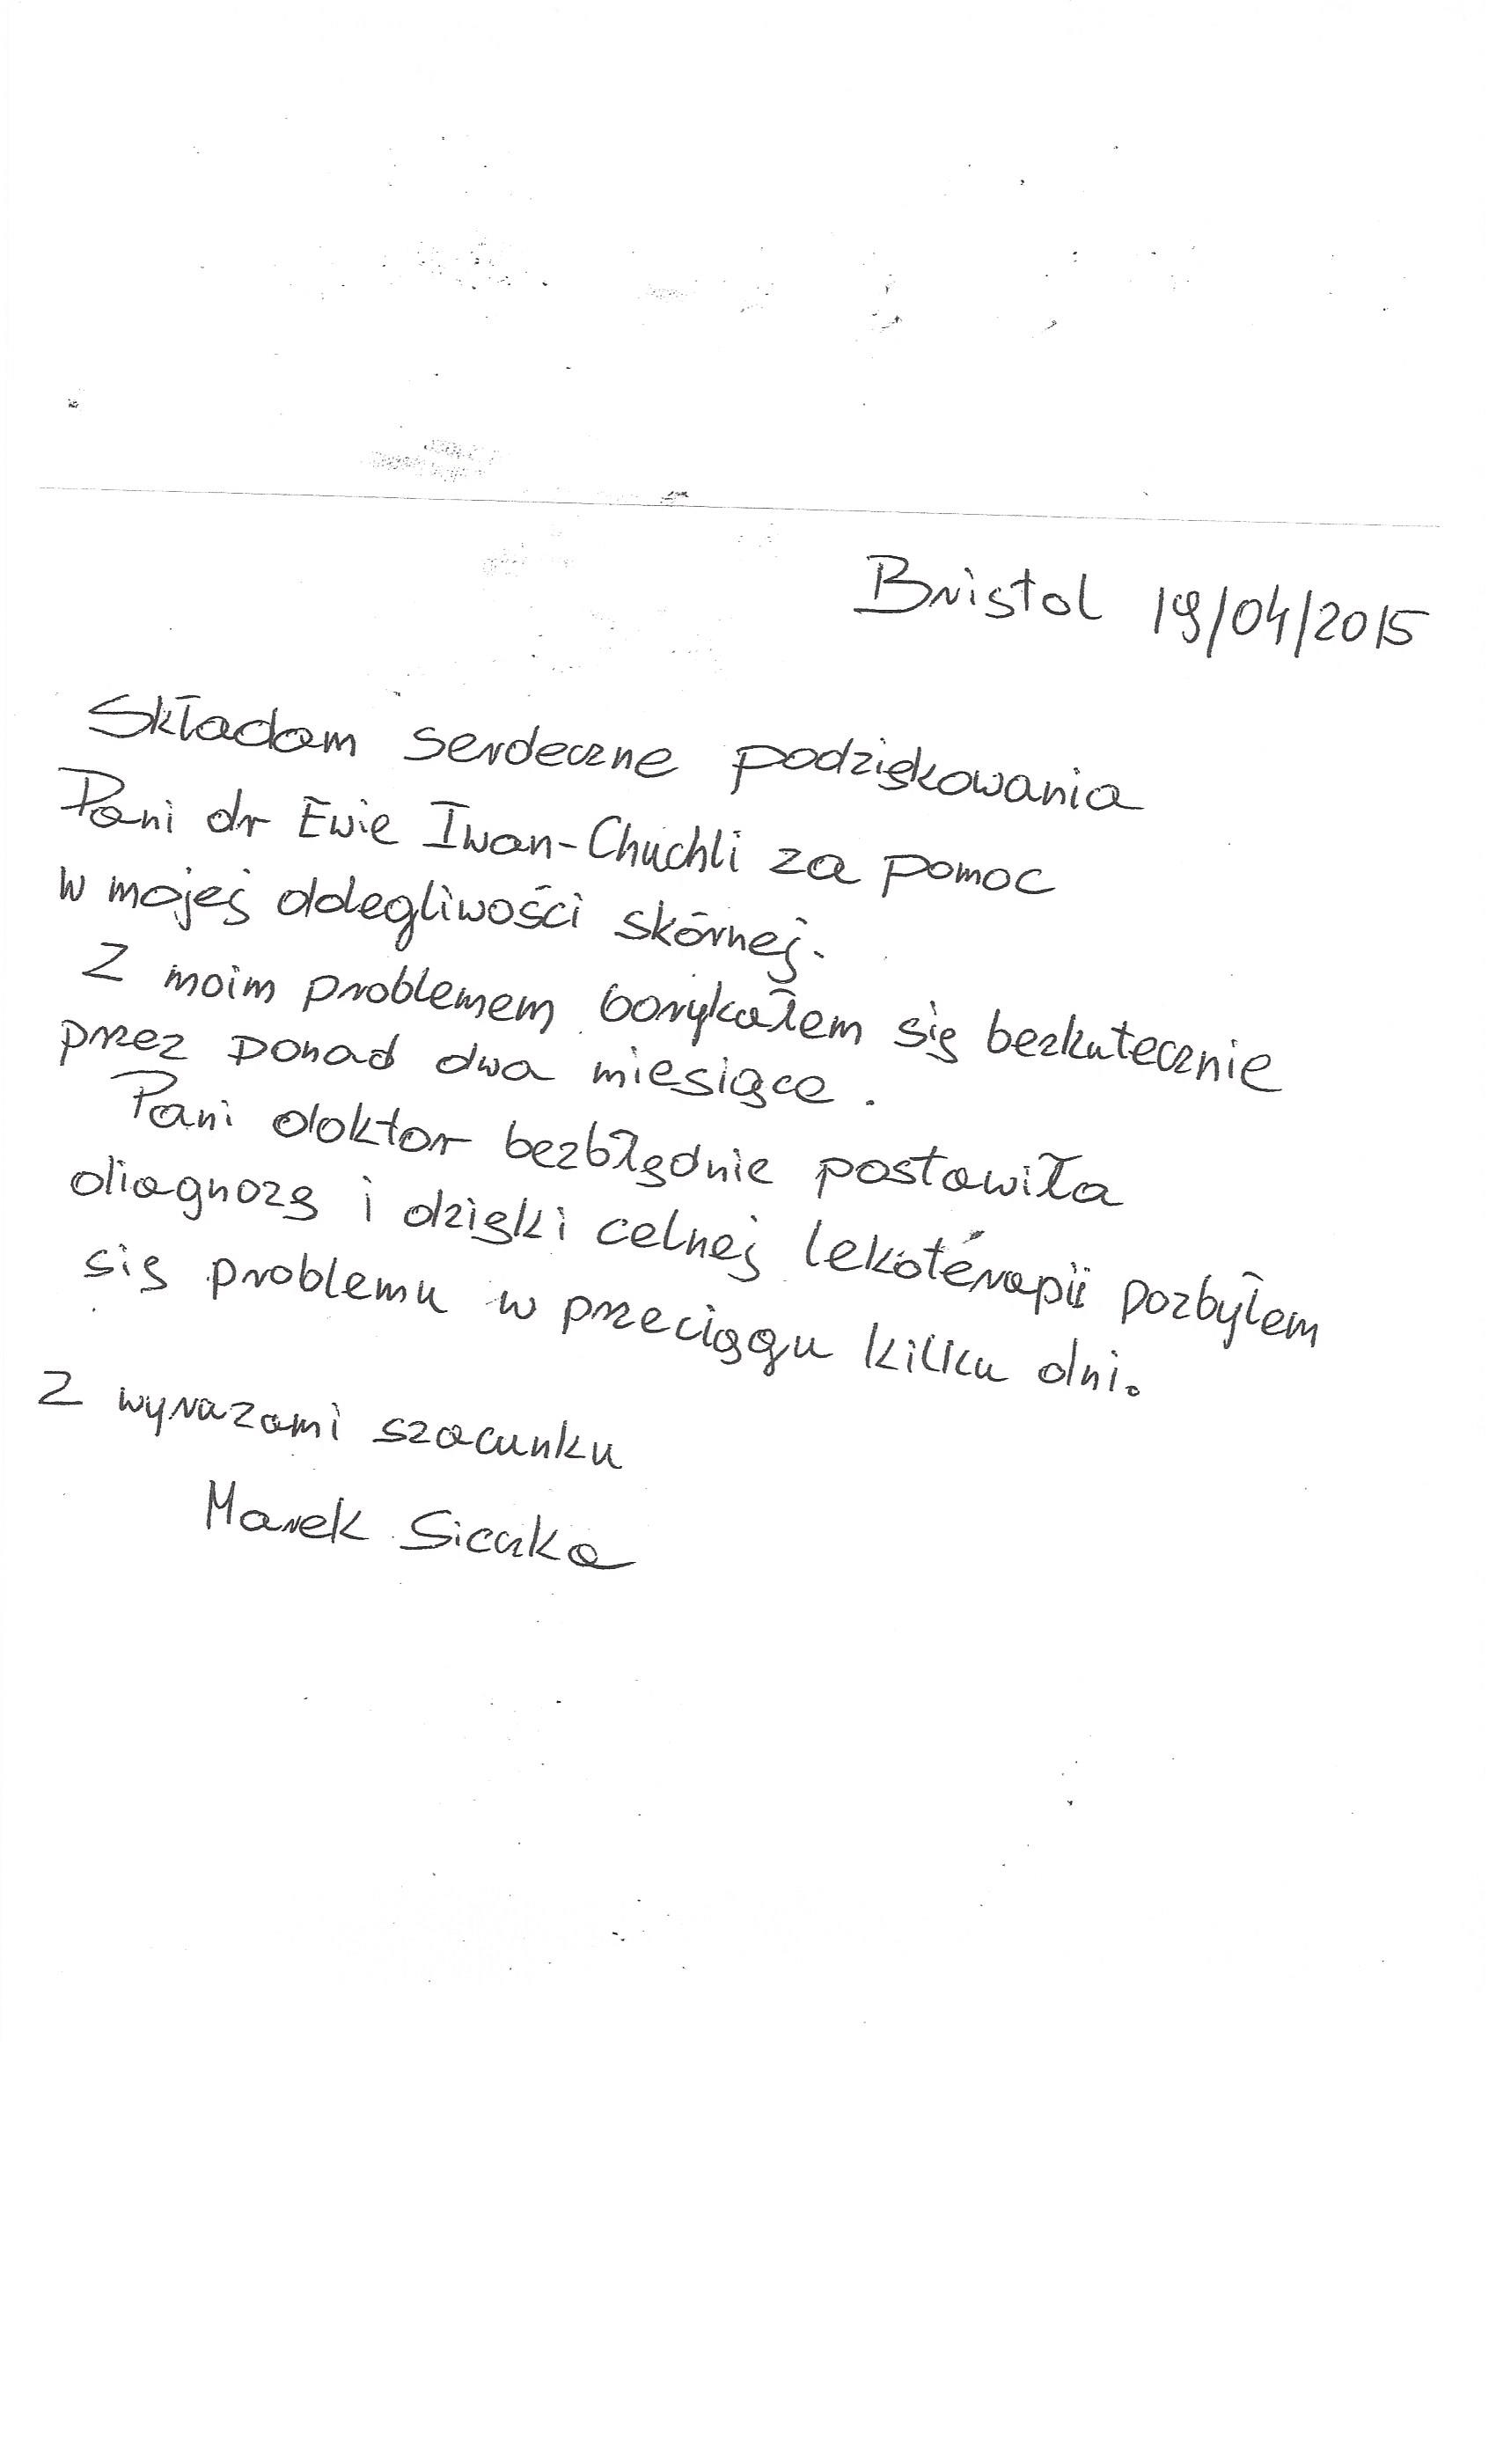 Bristol 19/04/2015
Składam serdeczne podziękowania
Pani dr Ewie Iwan-Chuchli za pomoc
w mojej dolegliwości skórnej.
Z moim problemem borykałem się bezkutecznie
przez ponad dwa miesiące.
Pani doktor bezbłędnie postawiła
diagnozę i dzięki celnej lekoterapii pozbyłem
się problemu w przeciągu kilku dni.
Z wyrazami szacunku
Marek Siczka